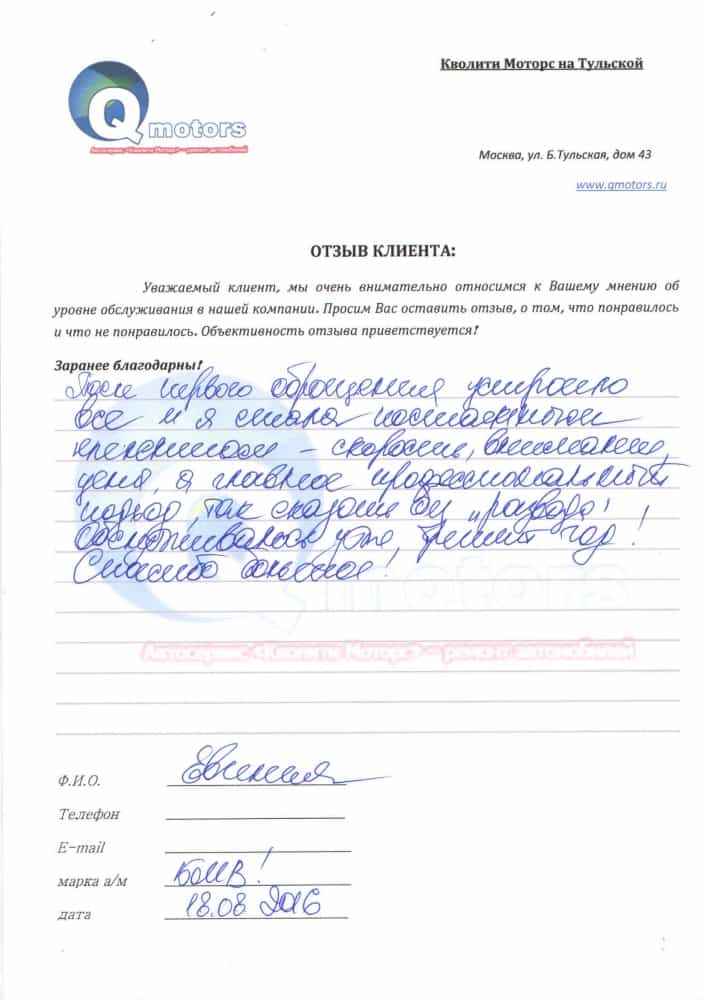 Кволити Моторс на Тульской
Q motors
Автосервис «Кволити Моторс» – ремонт автомобилей
Москва, ул. Б.Тульская, дом 43
www.qmotors.ru
ОТЗЫВ КЛИЕНТА:
Уважаемый клиент, мы очень внимательно относимся к Вашему мнению об
уровне обслуживания в нашей компании. Просим Вас оставить отзыв, о том, что понравилось
и что не понравилось. Объективность отзыва приветствуется!
Заранее благодарны!
После первого обращения устроило
все и я стала постоянным
клиентом – скорость, внимание,
цена, а главное профессиональный
подход, так сказать без „развода!
Обслуживаюсь уже, третий год!
Спасибо большое!
Q motors
Автосервис «Кволити Моторс» – ремонт автомобилей
Ф.И.О. Евгения
Телефон
E-mail
марка а/м БМВ!
дата 18.08 2016